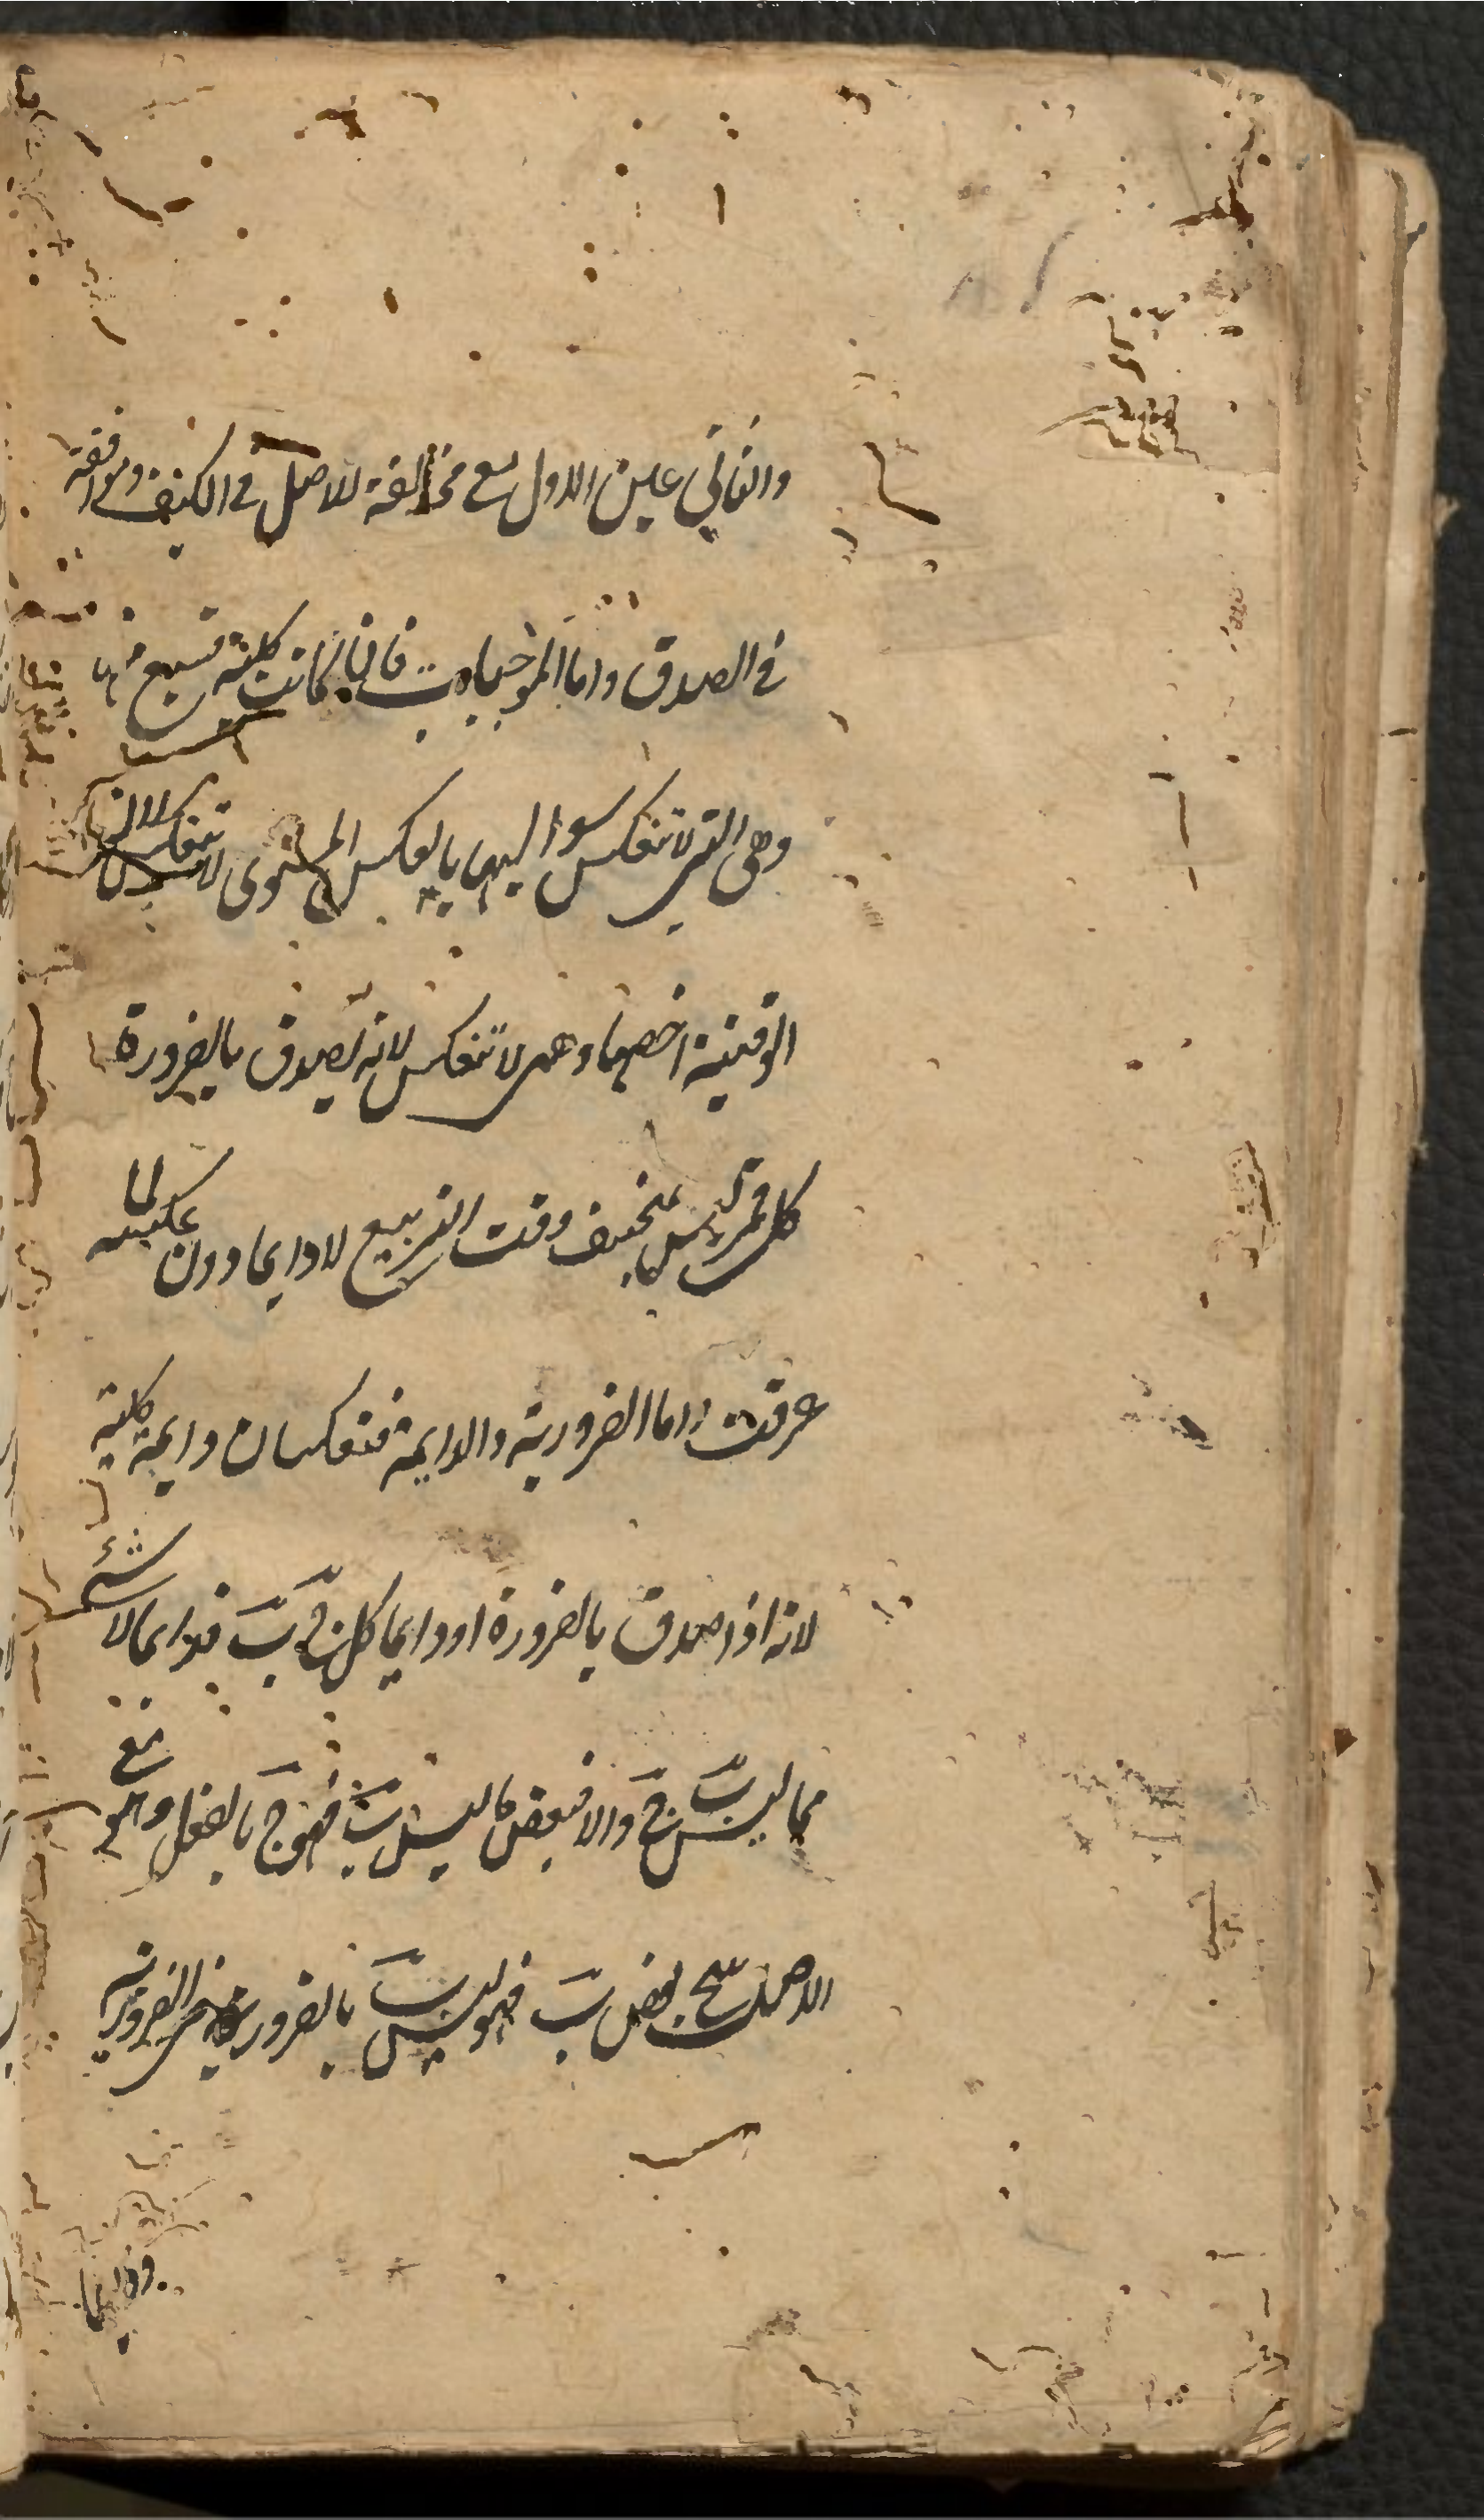 والثاني عين الاول مع مخالفة للاصل في الكيف وموافقة
في الصدق واما الموجبات فان كانت كلية فسبع منها
وهي التي لا تنعكس سوالبها بالعكس المستوى لا تنعكس لان
الوقتية اخصها وهي لا تنعكس لانه يصدق بالضرورة
كل قمر ليس بمنخسف وقت التربيع لا دايما دون عكسه لما
عرفت واما الضرورية والدايمة فتنعكسان دايمة كلية
لانه اذا صدق بالضرورة او دايما كل ج ب فدايما لا شئ
مما ليس ب ج والا فبعض ما ليس ب فهو ج بالفعل وهو مع
الاصل ينتج بعض ب فهو ليس ب بالضرورة في الضرورية
ودايما